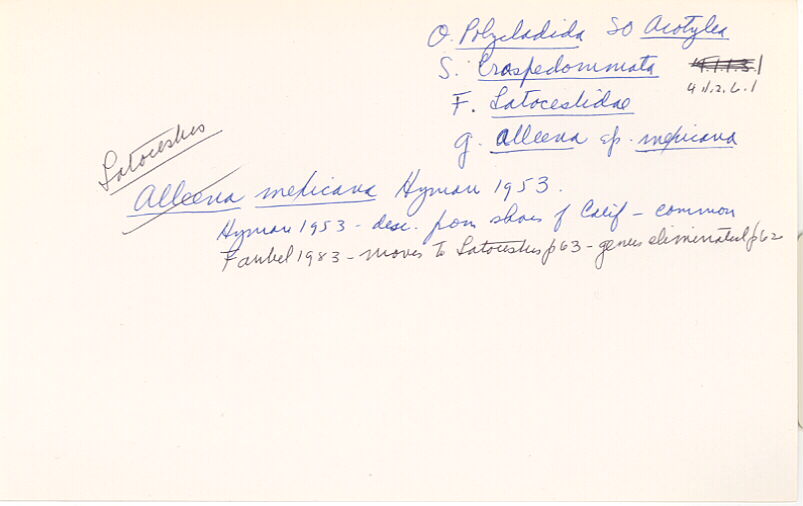 O. Polycladida SO Acotylea
S. Craspedommata 4.1.1.3.1
4.1.2.6.1
F. Latocestidae
g. Alleena sp. mexicana
Latocestus
Alleena mexicana Hyman 1953.
Hyman 1953 - desc. from shores of Calif - common
Faubel 1983 - moves to Latocestus p63 - genus eliminated p62